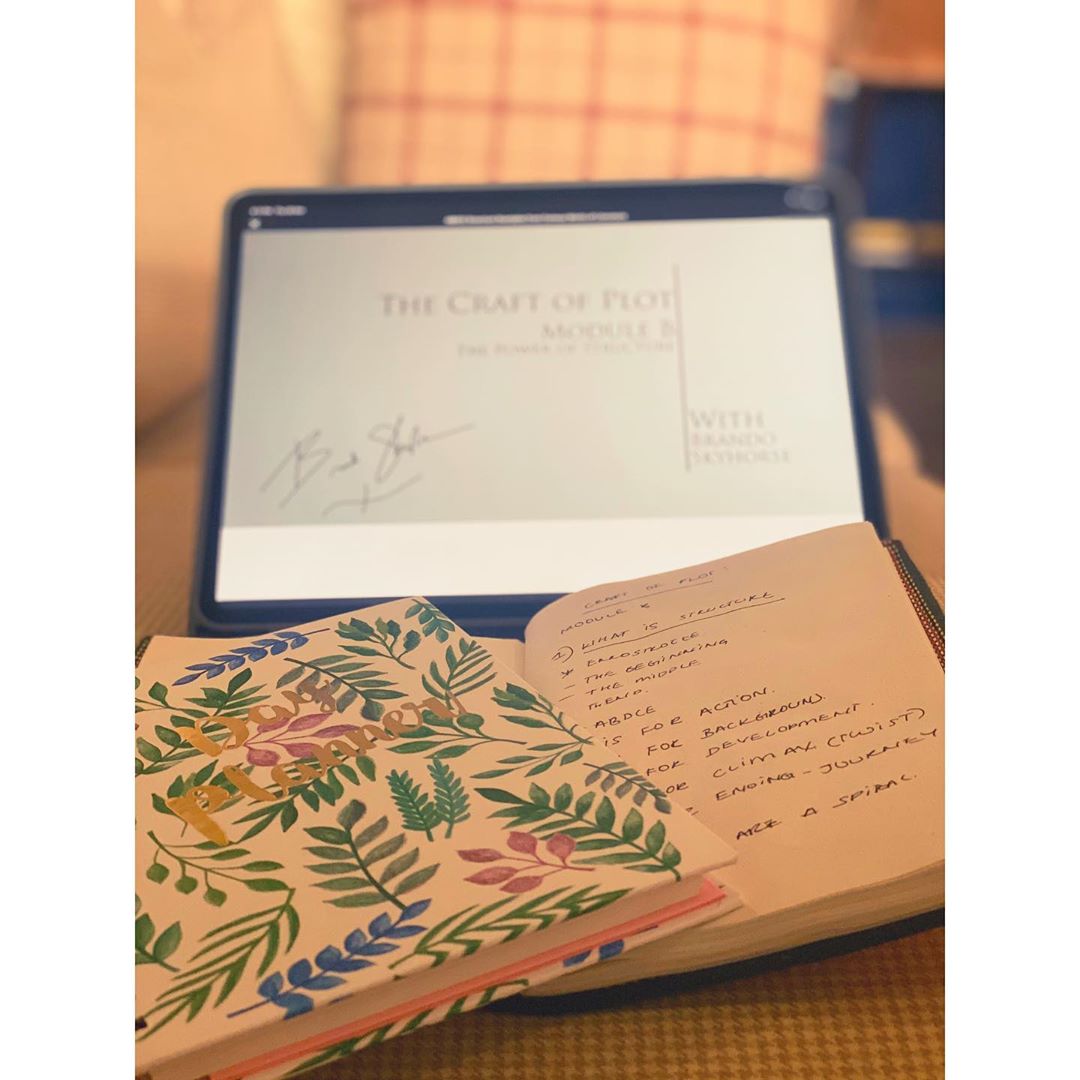 The Craft of Plot
Module B
The Power of Structure
With
Brando
Skyhorse
Day
Planner
CRAFT OF PLOT:
MODULE
1) WHAT IS STRUCTURE
- THE BEGINNING
- THE MIDDLE
ABDCE
IS FOR ACTION.
FOR BACKGROUND.
FOR DEVELOPMENT.
OR CLIMAX (TWIST)
ENDING - JOURNEY
ARE A SPIRAL.